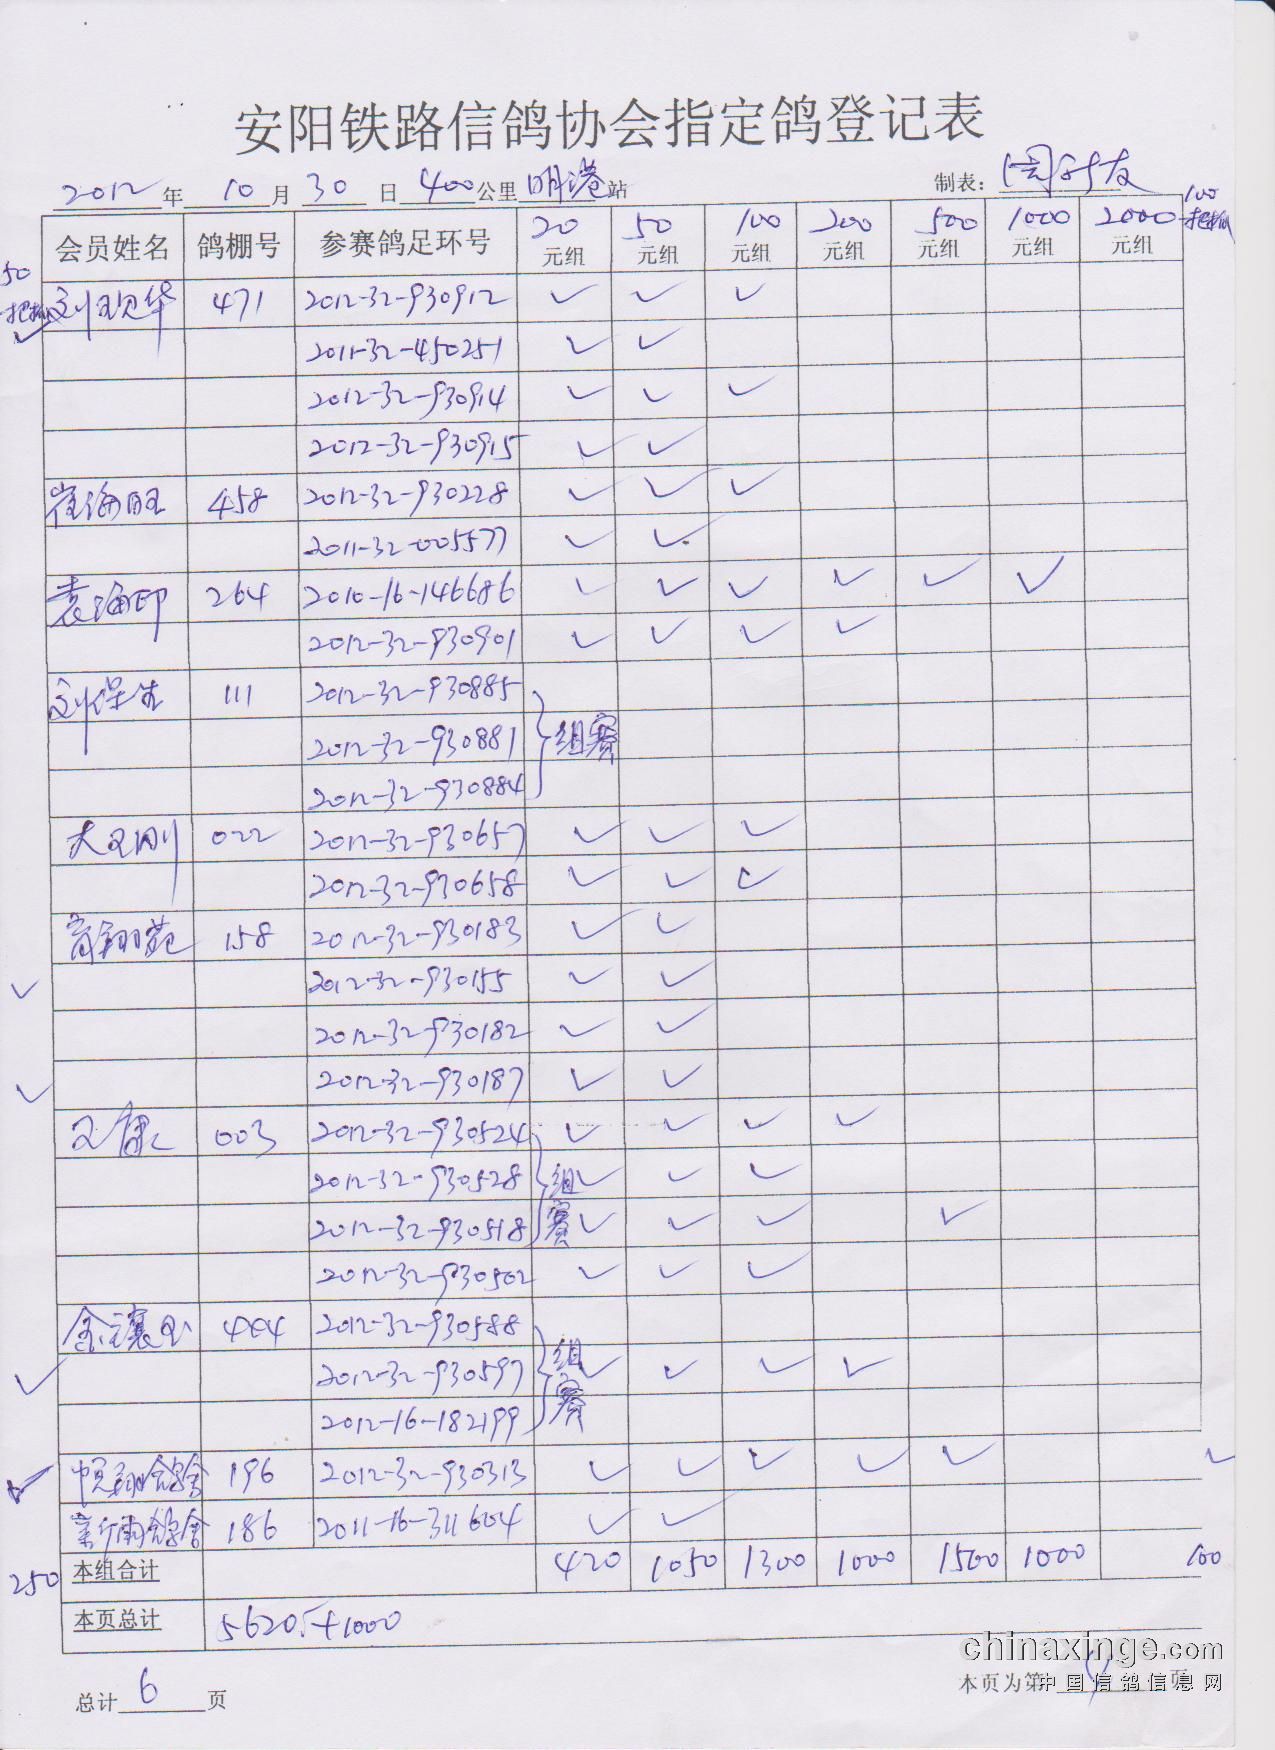 安阳铁路信鸽协会指定鸽登记表
2012年 10月 30日 400公里 明港站 制表：
会员姓名 鸽棚号 参赛鸽足环号 20元组 50元组 100元组 200元组 500元组 1000元组 2000元组 100
50
471 2012-32-930912 ✓ ✓ ✓
2011-32-450251 ✓ ✓
2012-32-930914 ✓ ✓ ✓
2012-32-930915 ✓ ✓
崔海旺 458 2012-32-930228 ✓ ✓ ✓
2011-32-005577 ✓ ✓
袁海印 264 2010-16-146686 ✓ ✓ ✓ ✓ ✓ ✓
2012-32-930901 ✓ ✓ ✓ ✓
刘保生 111 2012-32-930885
2012-32-930881 组赛
2012-32-930884
022 2012-32-930657 ✓ ✓ ✓
2012-32-930658 ✓ ✓ ✓
158 2012-32-930183 ✓ ✓
✓ 2012-32-930155 ✓ ✓
2012-32-930182 ✓ ✓
✓ 2012-32-930187 ✓ ✓
003 2012-32-930524 ✓ ✓ ✓ ✓
2012-32-930528 组 ✓ ✓ ✓
2012-32-930518 赛 ✓ ✓ ✓ ✓
2012-32-930502 ✓ ✓ ✓
444 2012-32-930588
✓ 2012-32-930597 组 ✓ ✓ ✓ ✓
2012-16-182199 赛
✓ 196 2012-32-930313 ✓ ✓ ✓ ✓ ✓ ✓
186 2011-16-311604 ✓ ✓
250 本组合计 420 1050 1300 1000 1500 1000 100
本页总计 5620.+1000
chinaxinge.com
总计 6 页 本页为第 页
中国信鸽信息网